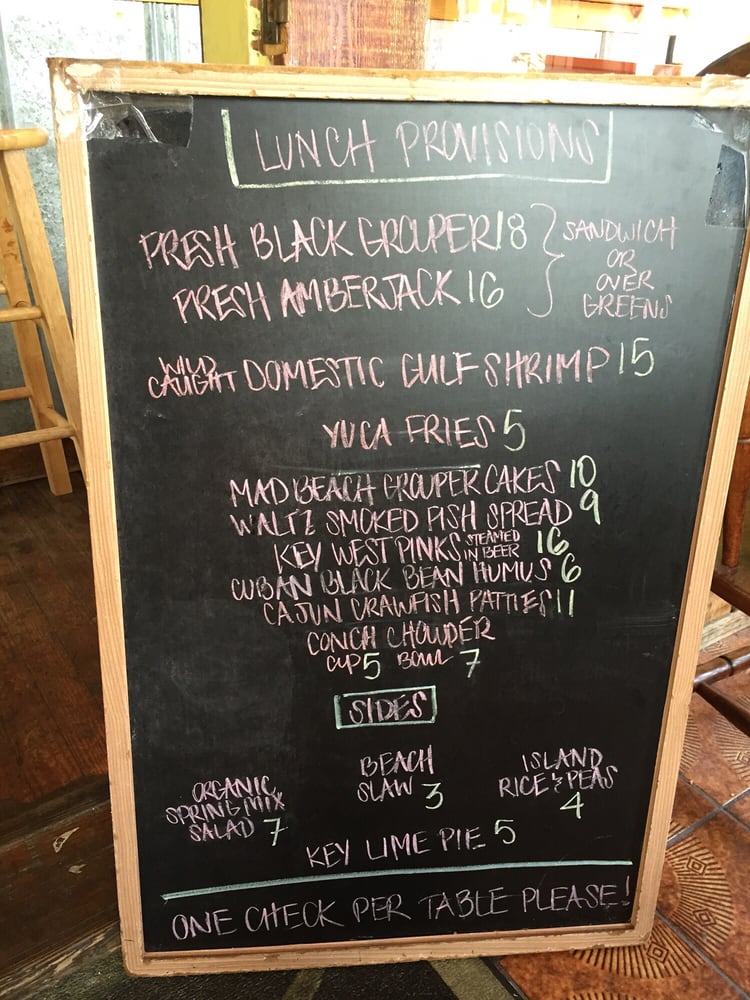 LUNCH PROVISIONS
FRESH BLACK GROUPER 18
FRESH AMBERJACK 16
SANDWICH
OR
OVER
GREENS
WILD
CAUGHT DOMESTIC GULF SHRIMP 15
YUCA FRIES 5
MAD BEACH GROUPER CAKES 10
WALTZ SMOKED FISH SPREAD 9
KEY WEST PINKS STEAMED IN BEER 16
CUBAN BLACK BEAN HUMUS 6
CAJUN CRAWFISH PATTIES 11
CONCH CHOWDER
CUP 5 BOWL 7
SIDES
ORGANIC
SPRING MIX
SALAD 7
BEACH
SLAW 3
ISLAND
RICE & PEAS
4
KEY LIME PIE 5
ONE CHECK PER TABLE PLEASE!